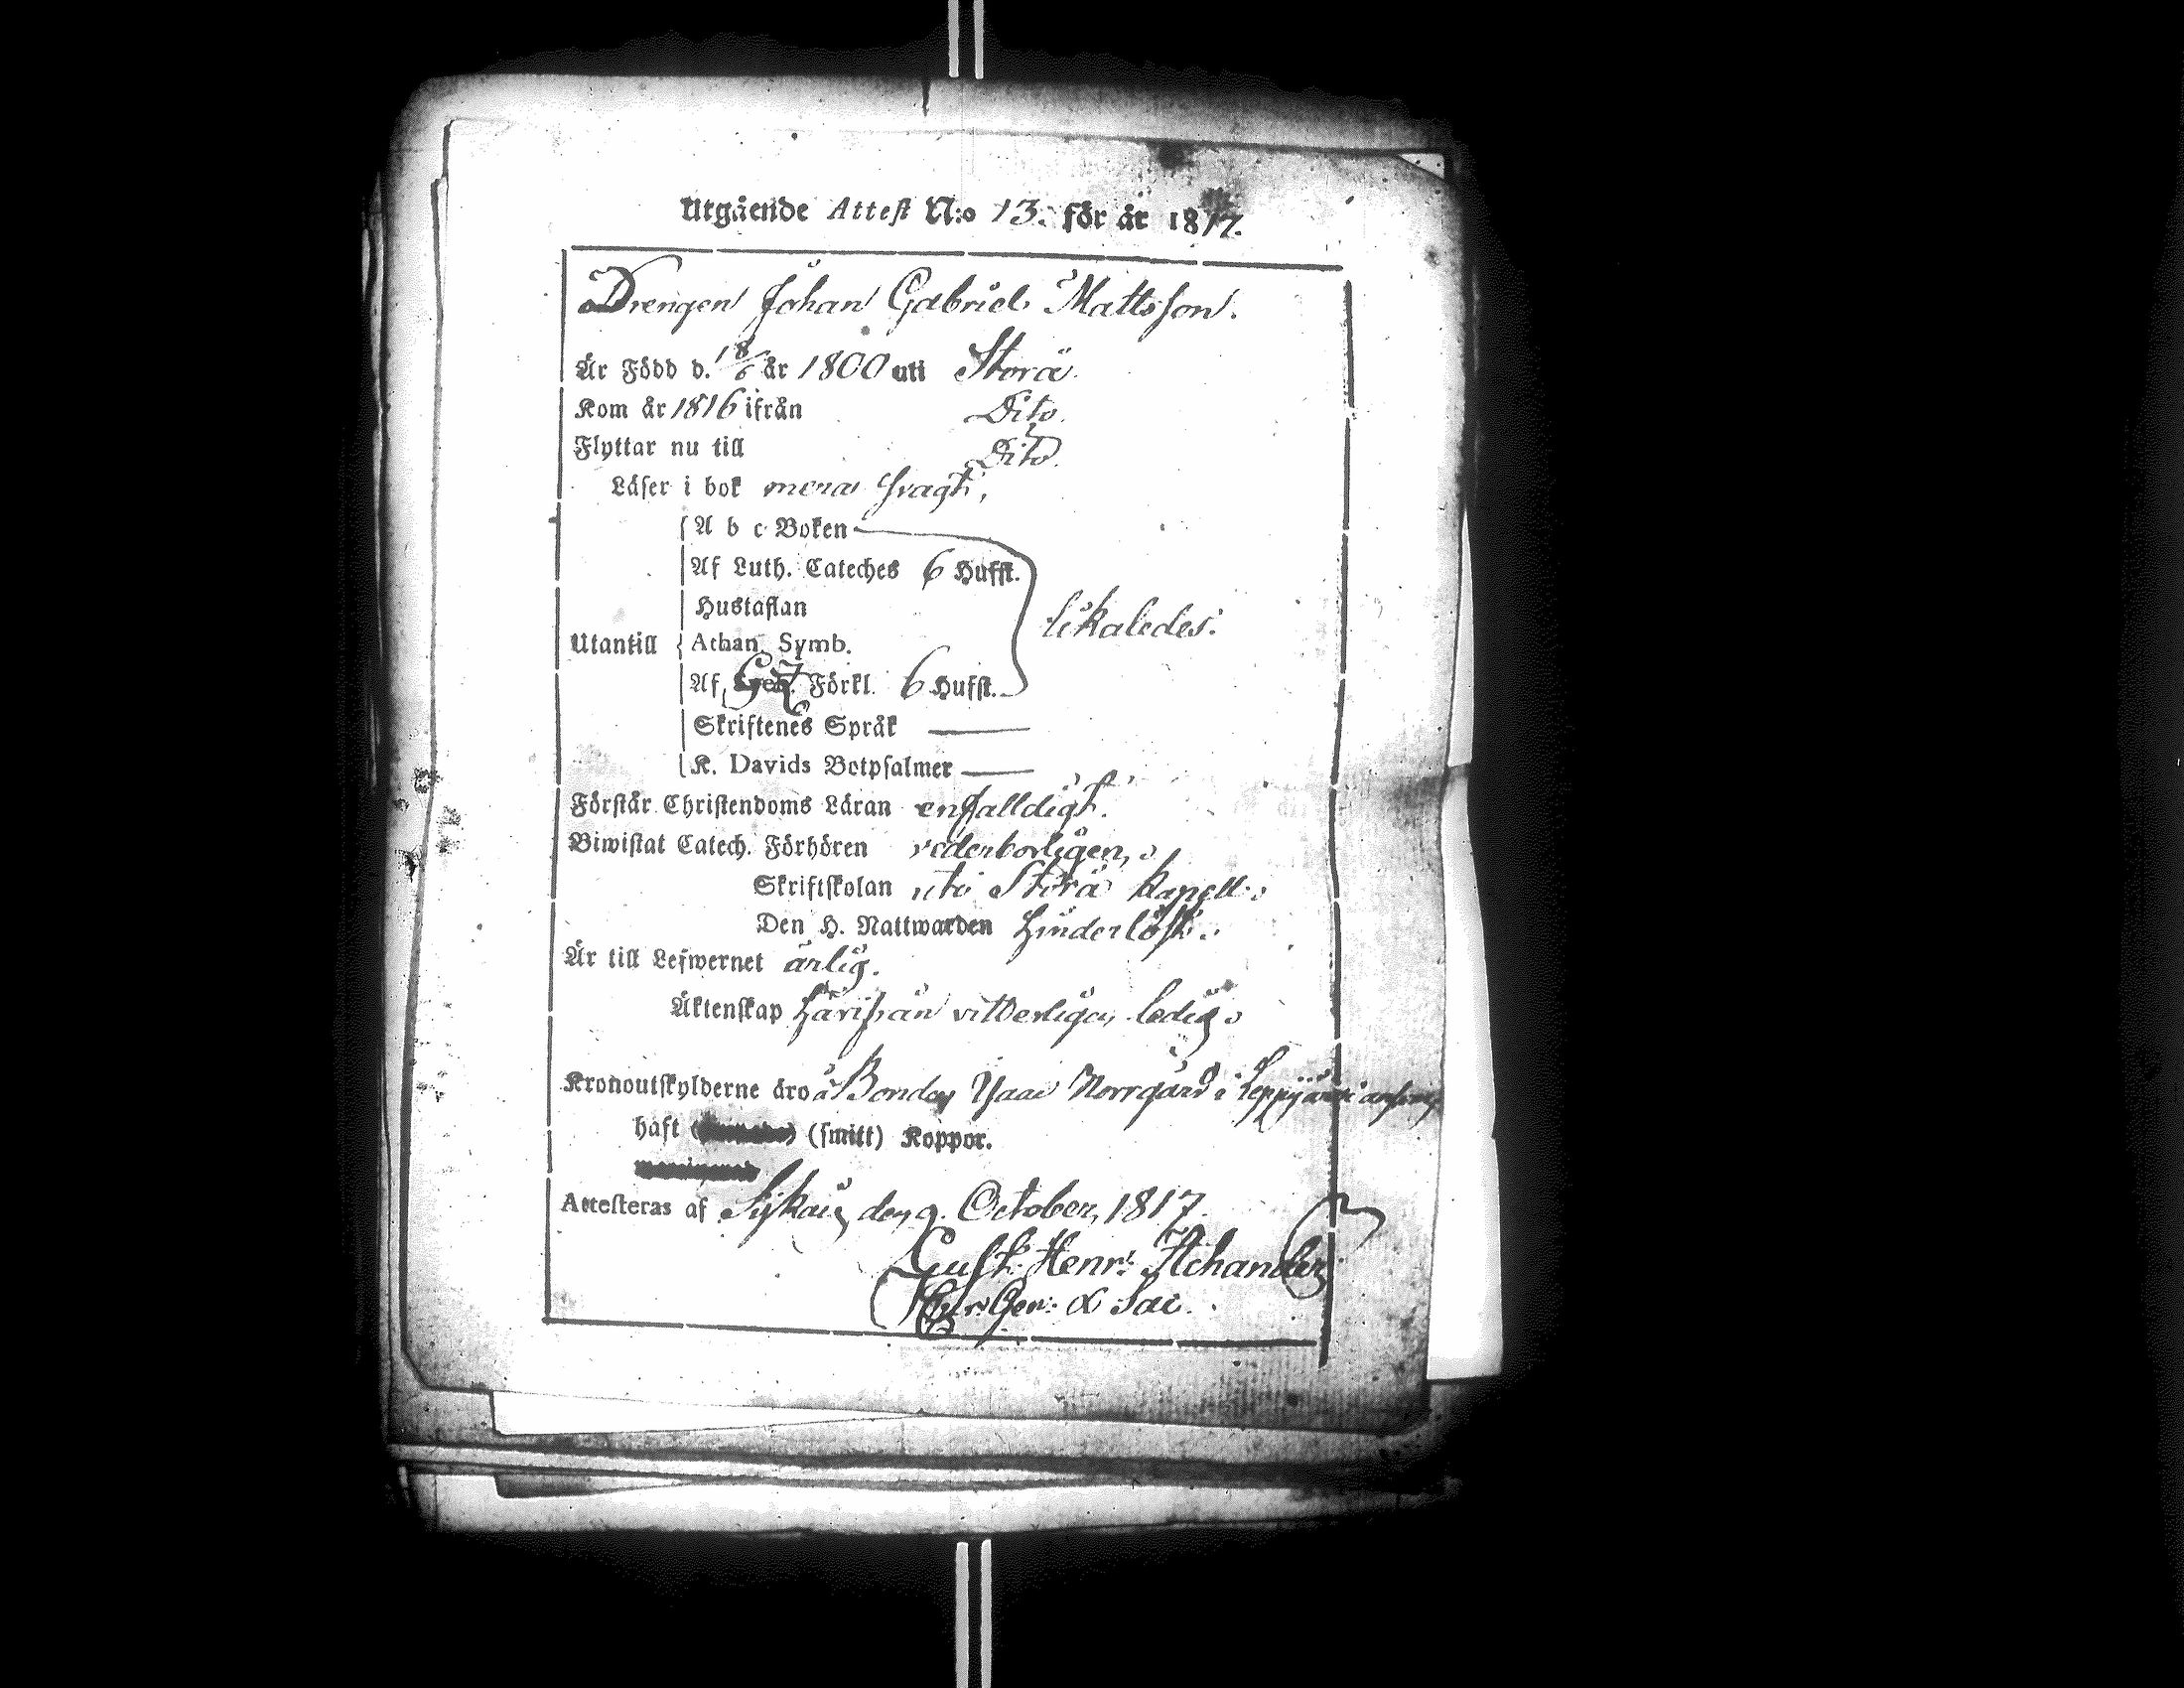 Utgående Attest N:o 13. för år 1817.
Drengen Johan Gabriel Mattsson.
Är Född d. 18/6 år 1800 uti Storå.
Kom år 1816 ifrån Dito.
Flyttar nu till Dito.
Läser i bok mera svagt,
A b c Boken
Af Luth. Cateches 6 Hufst.
Hustaflan
likaledes.
Utantill Athan. Symb.
Af Förkl. 6 Hufst.
Skriftenes Språk ——
K. Davids Botpsalmer ——
Förstår Christendoms Läran enfalldigt.
Biwistat Catech. Förhören vederborligen,
Skriftskolan uti Storå kapell.
Den H. Nattwarden hinderlöst.
Är till Lefwernet ärlig.
Äktenskap härifrån vitterligen ledig
Kronoutskylderne äro å Bonden Norrgård i
haft (smitt) Koppor.
Attesteras af den 9. October, 1817.
Gust. Henr: